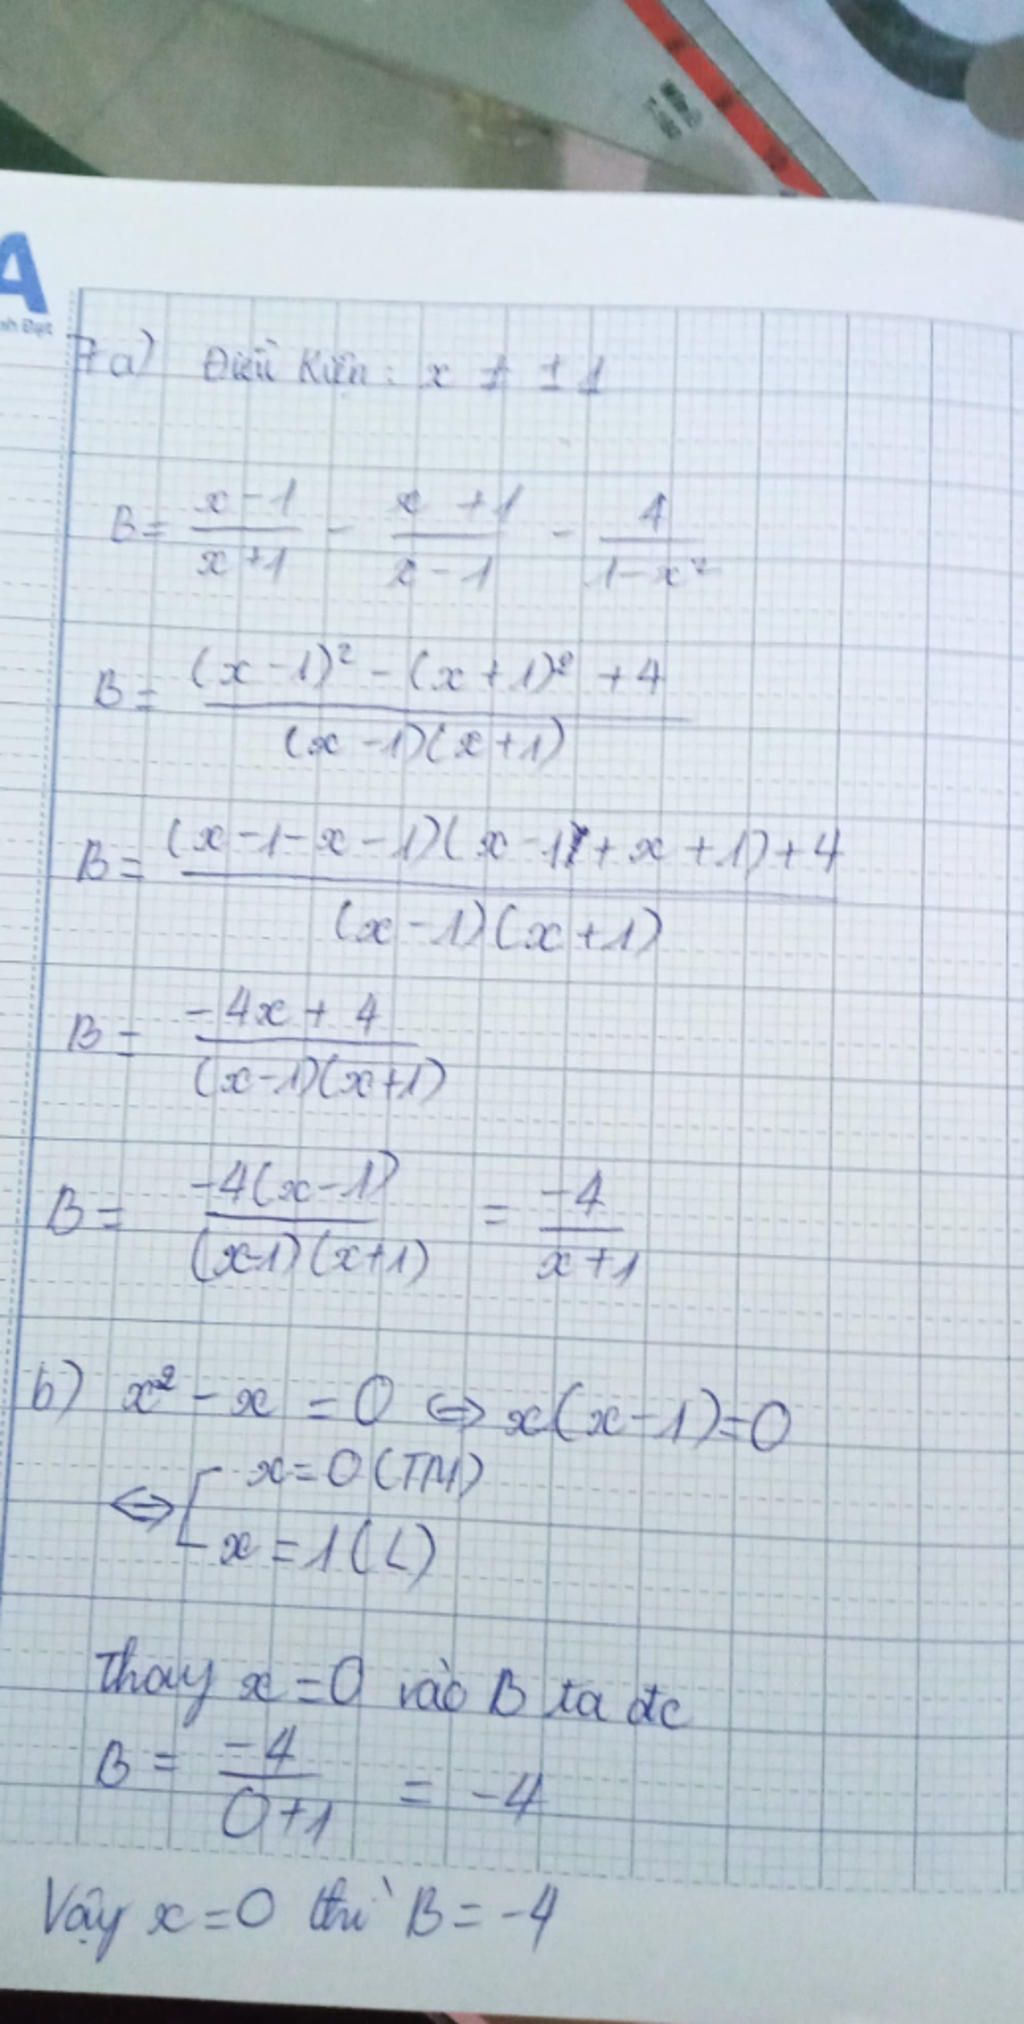 A
7a) Điều kiện: x ≠ ±1
B = \frac{x-1}{x+1} - \frac{x+1}{x-1} - \frac{4}{1-x²}
B = \frac{(x-1)² - (x+1)² + 4}{(x-1)(x+1)}
B = \frac{(x-1-x-1)(x-1+x+1)+4}{(x-1)(x+1)}
B = \frac{-4x+4}{(x-1)(x+1)}
B = \frac{-4(x-1)}{(x-1)(x+1)} = \frac{-4}{x+1}
b) x² - x = 0 ⇔ x(x-1)=0
⇔ [ x = 0 (TM)
x = 1 (L)
Thay x = 0 vào B ta đc
B = \frac{-4}{0+1} = -4
Vậy x = 0 thì B = -4